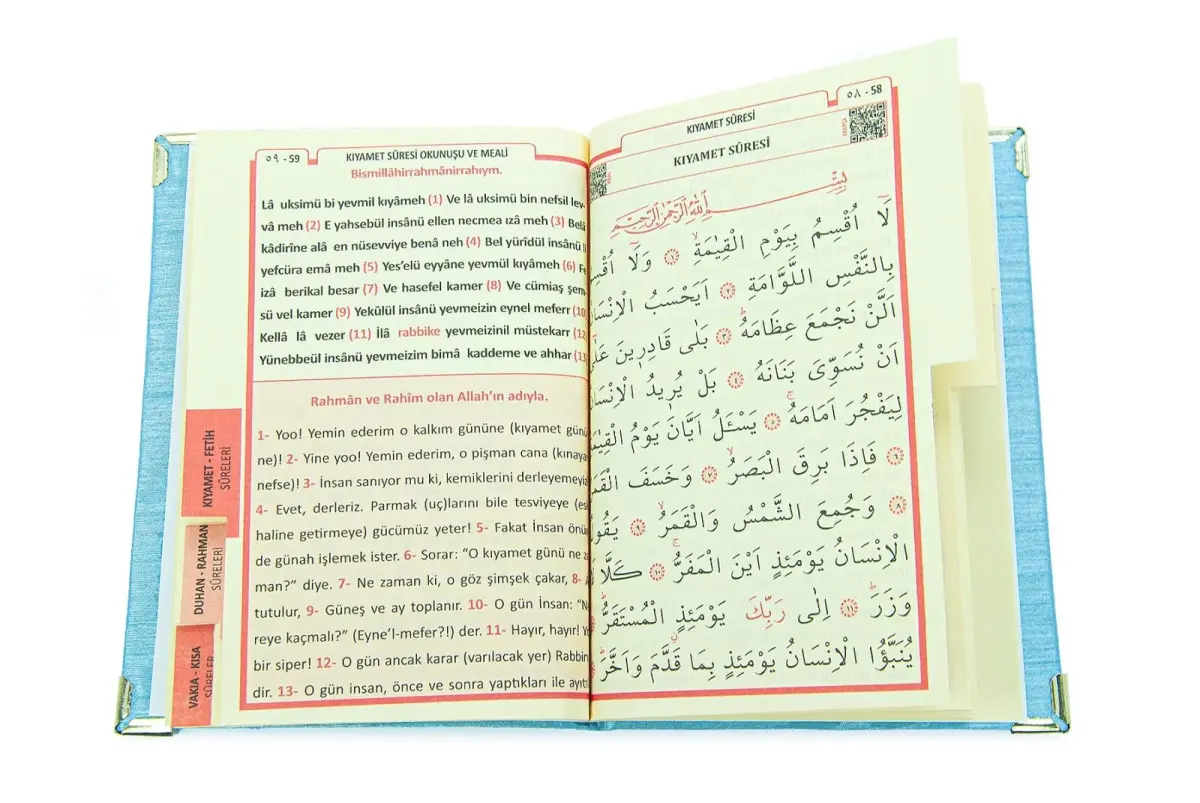 ٥٩ - 59
KIYAMET SÛRESİ OKUNUŞU VE MEALİ
Bismillâhirrahmânirrahıym.
Lâ uksimü bi yevmil kıyâmeh (1) Ve lâ uksimü bin nefsil lev-
vâ meh (2) E yahsebül insânü ellen necmea ızâ meh (3) Belâ
kâdirîne alâ en nüsevviye benâ neh (4) Bel yürîdül insânü
yefcüra emâ meh (5) Yes'elü eyyâne yevmül kıyâmeh (6)
izâ berikal besar (7) Ve hasefel kamer (8) Ve cümiaş şem
sü vel kamer (9) Yekûlül insânü yevmeizin eynel meferr (10
Kellâ lâ vezer (11) İlâ rabbike yevmeizinil müstekarr (12
Yünebbeül insânü yevmeizim bimâ kaddeme ve ahhar (13
Rahmân ve Rahîm olan Allah'ın adıyla.
1- Yoo! Yemin ederim o kalkım gününe (kıyamet günü
ne)! 2- Yine yoo! Yemin ederim, o pişman cana (kınaya
nefse)! 3- İnsan sanıyor mu ki, kemiklerini derleyemeyi
4- Evet, derleriz. Parmak (uç)larını bile tesviyeye (es
haline getirmeye) gücümüz yeter! 5- Fakat İnsan önü
de günah işlemek ister. 6- Sorar: “O kıyamet günü ne za
man?” diye. 7- Ne zaman ki, o göz şimşek çakar, 8-
tutulur, 9- Güneş ve ay toplanır. 10- O gün İnsan: “Ne
reye kaçmalı?” (Eyne'l-mefer?!) der. 11- Hayır, hayır!
bir siper! 12- O gün ancak karar (varılacak yer) Rabbin
dir. 13- O gün insan, önce ve sonra yaptıkları ile
KIYAMET - FETİH
SÛRELERİ
DUHAN - RAHMAN
SÛRELERİ
VAKIA - KISA
SÛRELER
٥٨ - 58
KIYAMET SÛRESİ
KIYAMET SÛRESİ
بِسْمِ اللّٰهِ الرَّحْمٰنِ الرَّح۪يمِ
لَٓا اُقْسِمُ بِيَوْمِ الْقِيٰمَةِۙ ﴿١﴾ وَلَٓا اُقْسِمُ
بِالنَّفْسِ اللَّوَّامَةِ ﴿٢﴾ اَيَحْسَبُ الْاِنْسَانُ
اَلَّنْ نَجْمَعَ عِظَامَهُۜ ﴿٣﴾ بَلٰى قَادِر۪ينَ عَلٰٓى
اَنْ نُسَوِّيَ بَنَانَهُ ﴿٤﴾ بَلْ يُر۪يدُ الْاِنْسَانُ
لِيَفْجُرَ اَمَامَهُۚ ﴿٥﴾ يَسْـَٔلُ اَيَّانَ يَوْمُ الْقِيٰمَةِ
﴿٦﴾ فَاِذَا بَرِقَ الْبَصَرُۙ ﴿٧﴾ وَخَسَفَ الْقَمَرُ
﴿٨﴾ وَجُمِعَ الشَّمْسُ وَالْقَمَرُۙ ﴿٩﴾ يَقُولُ
الْاِنْسَانُ يَوْمَئِذٍ اَيْنَ الْمَفَرُّۚ ﴿١٠﴾ كَلَّا لَا
وَزَرَۜ ﴿١١﴾ اِلٰى رَبِّكَ يَوْمَئِذٍ الْمُسْتَقَرُّۜ
يُنَبَّؤُا الْاِنْسَانُ يَوْمَئِذٍ بِمَا قَدَّمَ وَاَخَّرَۜ